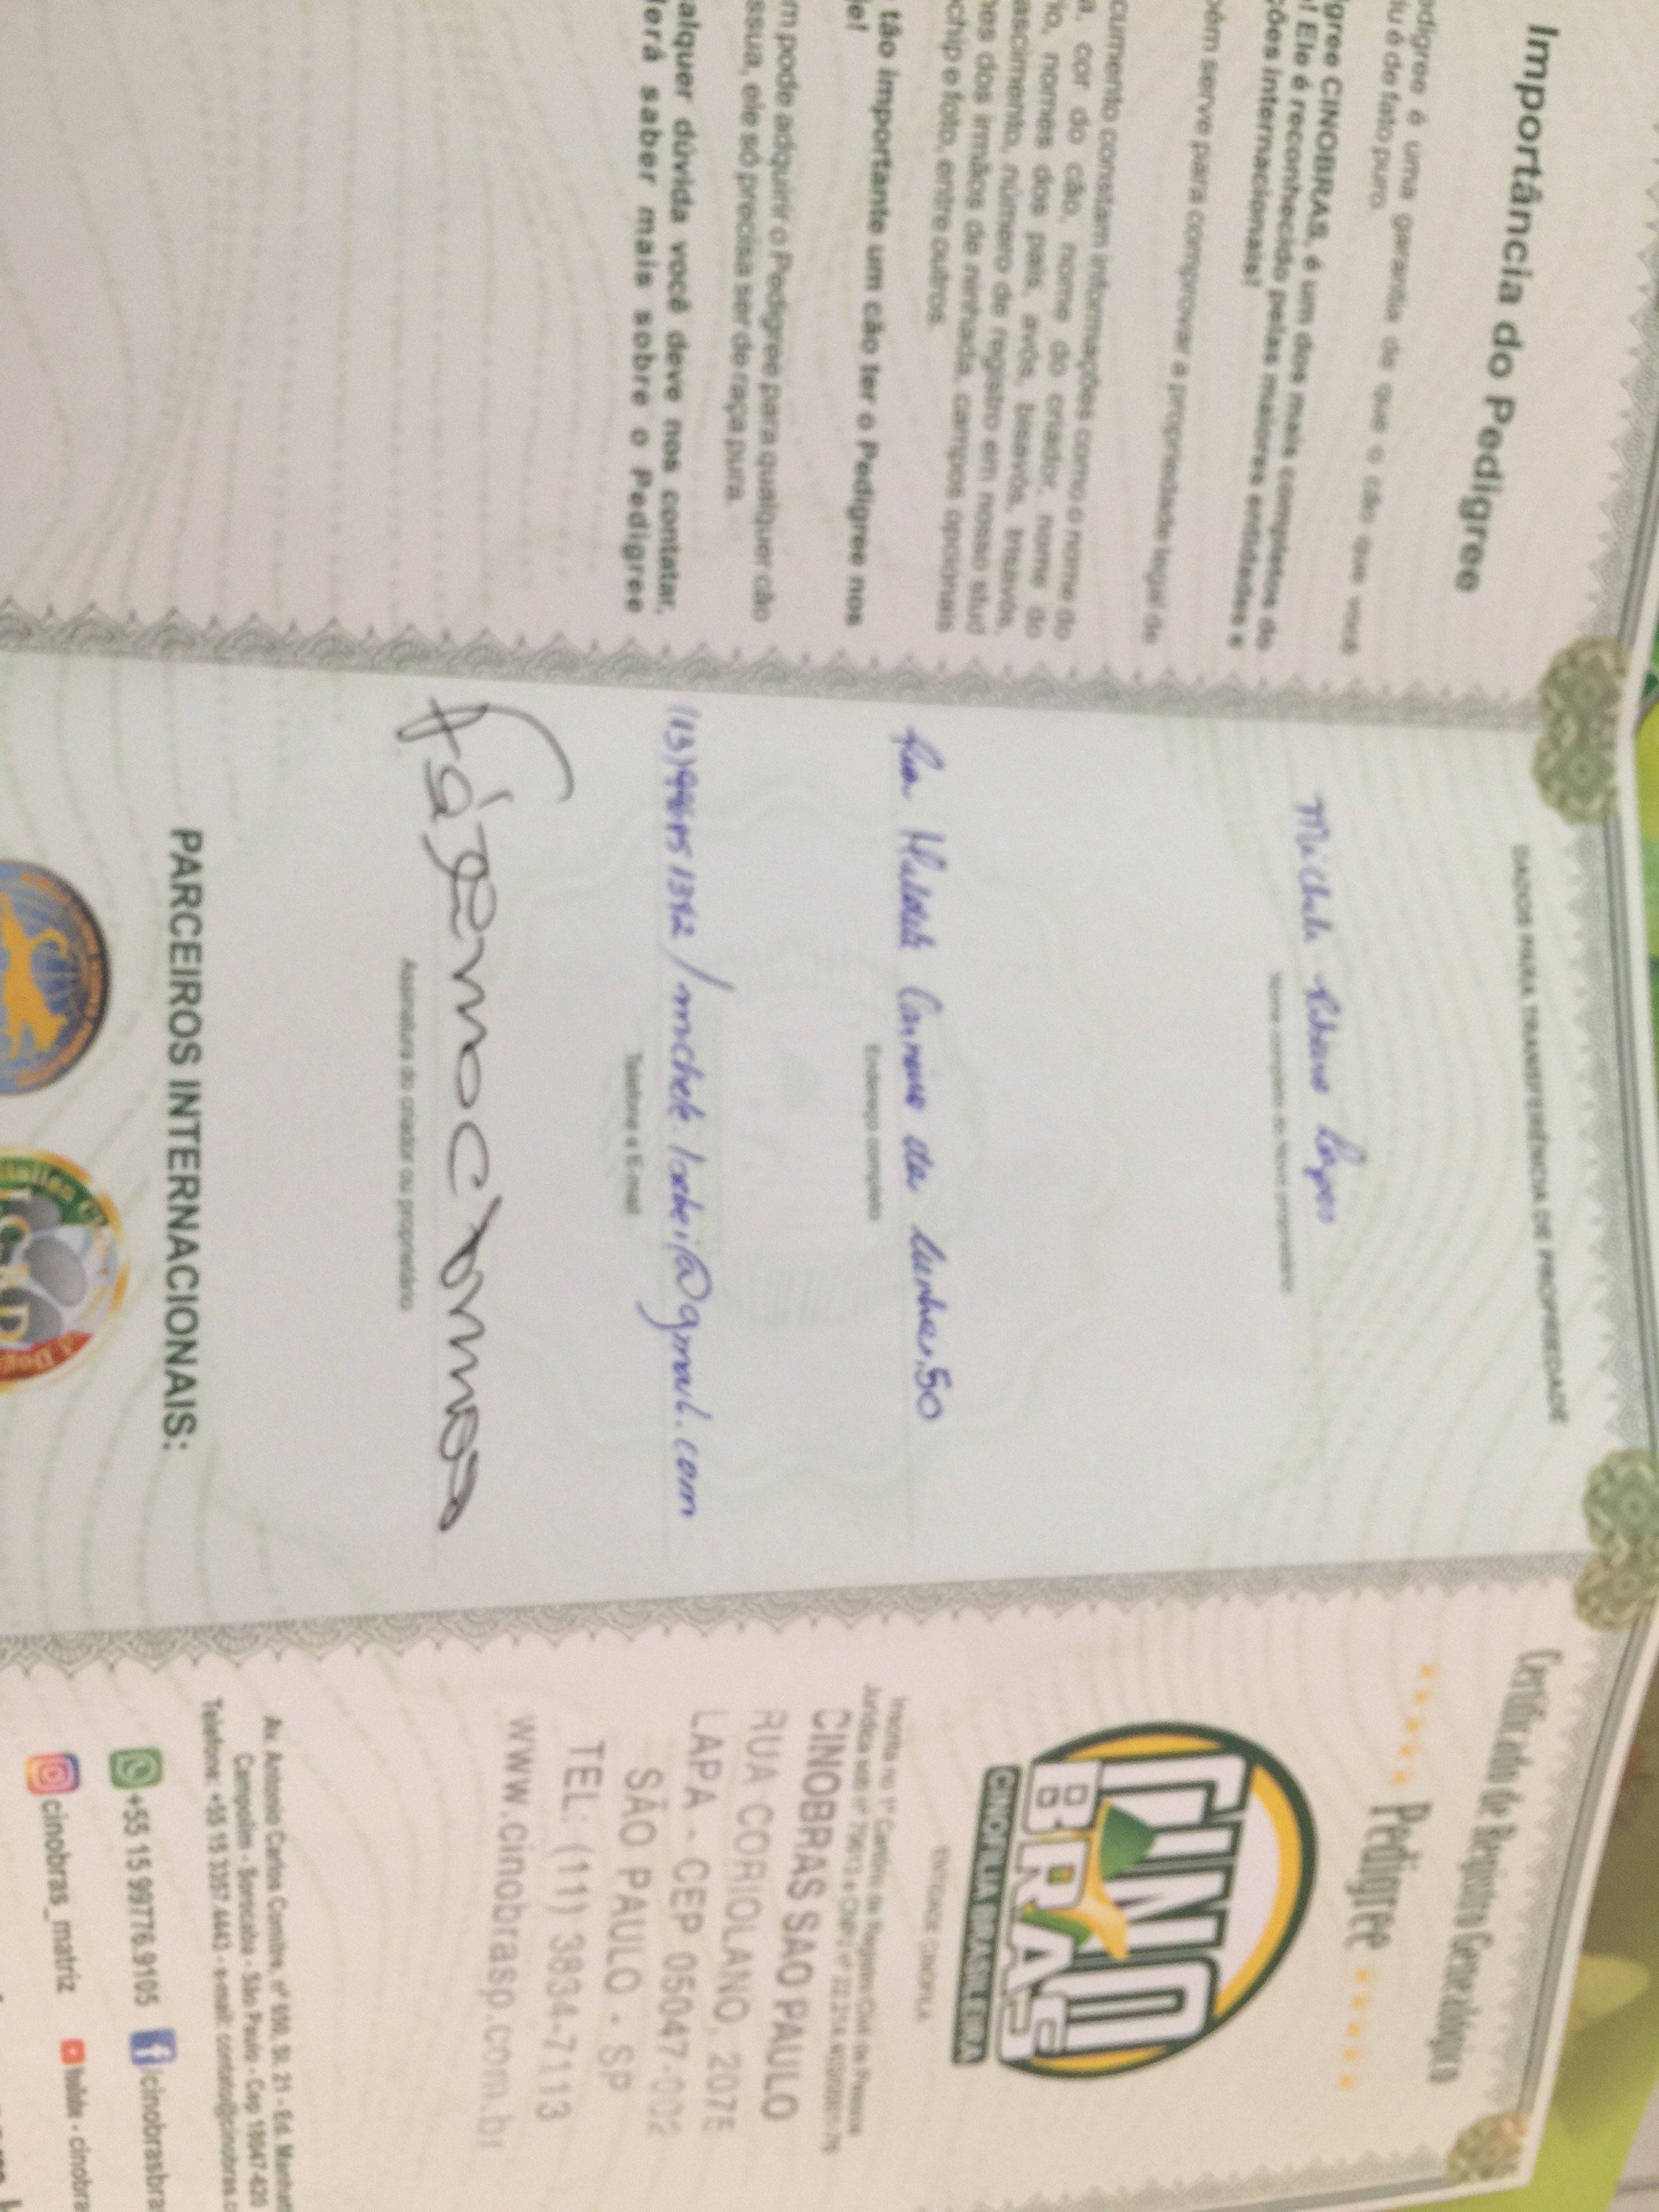 Importância do Pedigree
edigree é uma garantia de que o cão que você
iu é de fato puro.
igree CINOBRAS, é um dos mais completos do
! Ele é reconhecido pelas maiores entidades e
ções internacionais!
bém serve para comprovar a propriedade legal de
cumento constam informações como o nome do
a, cor do cão, nome do criador, nome do
io, nomes dos pais, avós, bisavós, trisavós,
ascimento, número de registro em nosso stud
nes dos irmãos de ninhada, campos opcionais
chip e foto, entre outros.
tão importante um cão ter o Pedigree nos
e!
m pode adquirir o Pedigree para qualquer cão
ssua, ele só precisa ser de raça pura.
alquer dúvida você deve nos contatar,
erá saber mais sobre o Pedigree
DADOS PARA TRANSFERÊNCIA DE PROPRIEDADE
Michele Lopes
Nome completo do Novo proprietário
Rua da Cunha, 50
Endereço completo
@gmail.com
Telefone e E-mail
Assinatura do criador ou proprietário
PARCEIROS INTERNACIONAIS:
Certificado de Registro Genealógico
Pedigree
CINO
BRAS
CINOFILIA BRASILEIRA
ENTIDADE CINÓFILA
Inscrita no 1º Cartório de Registro Civil de Pessoa
CINOBRAS SAO PAULO
RUA CORIOLANO, 2075
LAPA - CEP 05047-002
SÃO PAULO - SP
TEL: (11) 3834-7113
www.cinobrasp.com.br
Av. Antonio Carlos Comitre, nº 690, Sl. 21 - Ed. Manhat
Campolim - Sorocaba - São Paulo - Cep 18047-620
Telefone: +55 15 3357.4443 - e-mail: contato@cinobras.c
+55 15 99776.9105 /cinobrasbra
cinobras_matriz tube - cinobra